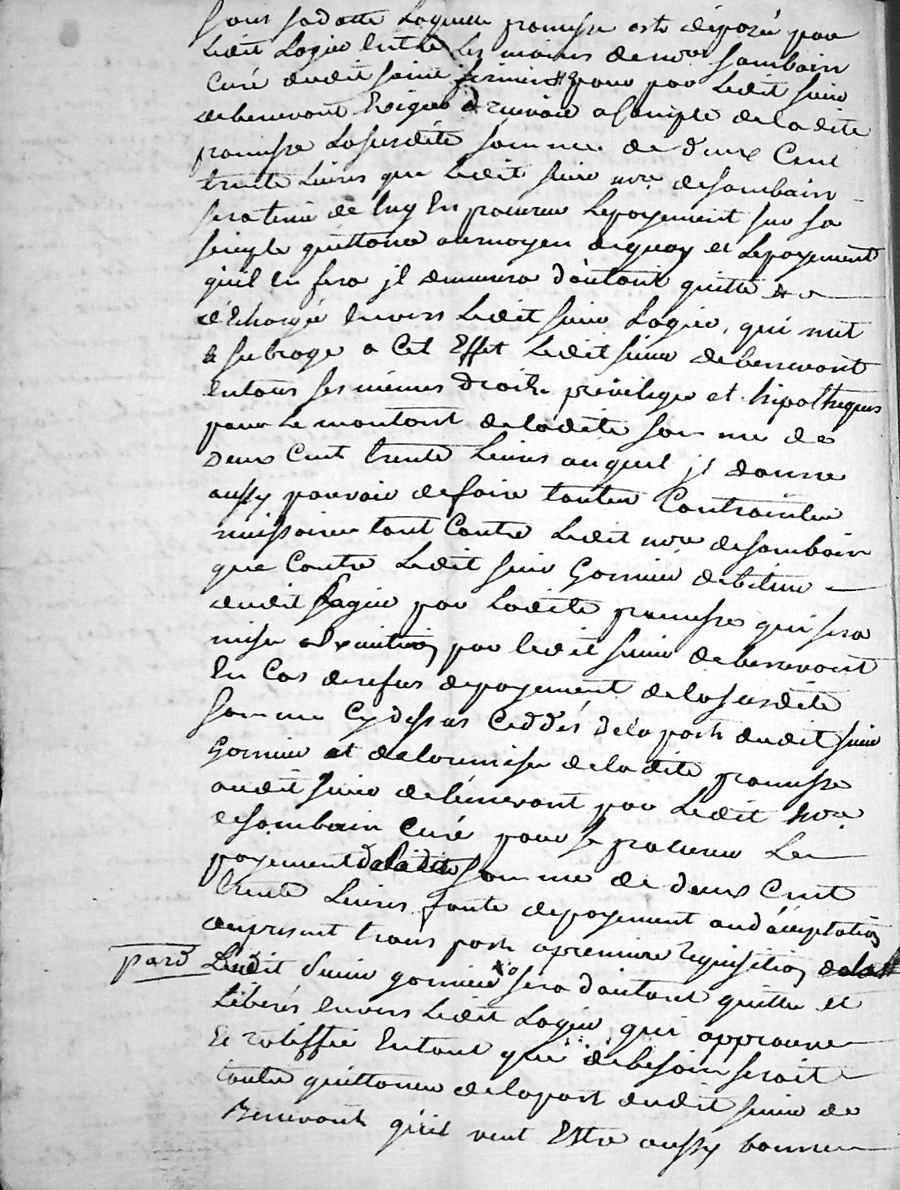 sous sadatte laquelle promesse est déposée par
ledit Lagier entre les mains de mre Sambain
curé dudit saint pour par ledit sieur
debenevant Exiger & recevoir a Compte deladite
promesse lasusdite somme de deux Cent
trente Livres que ledit sieur mre desambain
sera tenu de luy En procurer lepayement sur sa
simple quittance aumoyen dequoy et lepayement
quil En fera jl demurera dautant quitte &
déchargée Envers ledit sieur Lagier, qui met
& subroge a Cet Effet ledit sieur debenevant
Entous ses mêmes droits privilege et hipotheques
pour le montant deladite somme de
Deux Cent trente Livres auquel jl donne
aussy pouvoir defaire toutes Contraintes
necessaires tant Contre ledit mre desambain
que Contre ledit sieur Garnier debiteur
dudit Lagier par ladite promesse qui sera
mise a Execution par ledit sieur debenevant
En Cas derefus depayement delasusdite
somme Cy dessus Ceddés delapart dudit sieur
Garnier et delaremise deladite promesse
audit sieur debenevant par ledit mre
desambain Curé pour se procurer le
payement deladite somme de deux Cent
trente Livres faute depayement and'acceptation
duprésent transport apremiere requisition
pard Ledit sieur garnier sera dautant quitte et
Libérés Envers ledit Lagier qui approuve
Et ratiffie Entant que debesoin serait
toutes quittances delapart dudit sieur de
Benevant qu'il veut Estre aussy bonnes